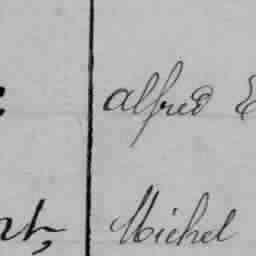 Alfred E
Michel